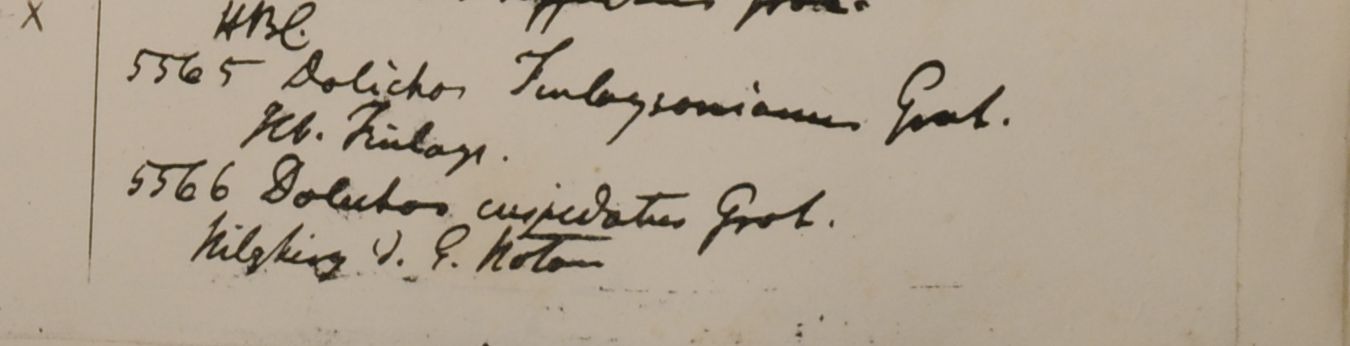 X
HBC.
5565 Dolichos Finlaysonianus Grah.
Hb. Finlays.
5566 Dolichos cuspidatus Grah.
Nilghiry